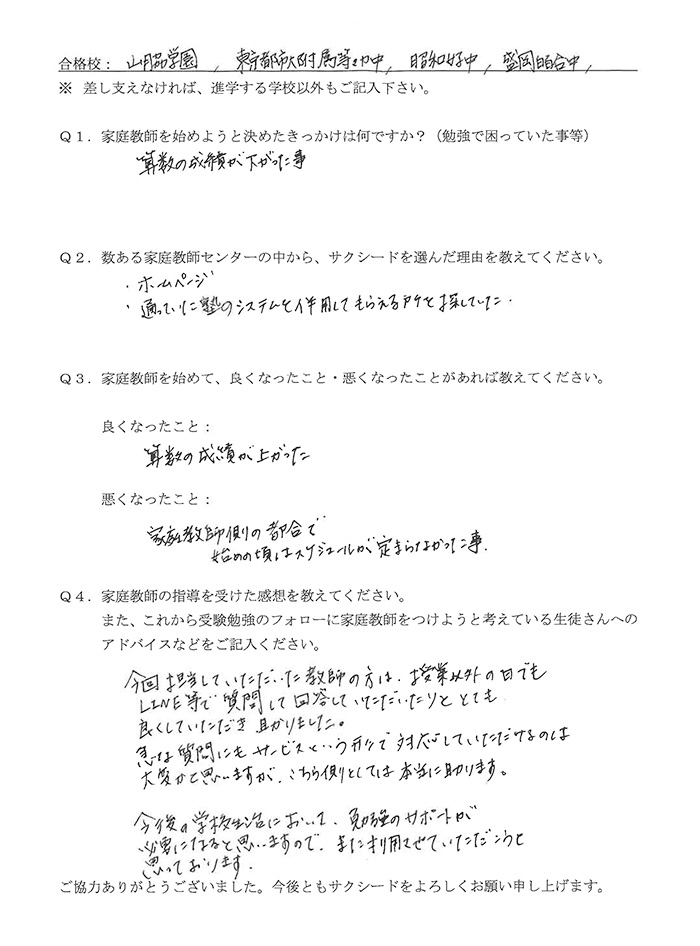 合格校： 山脇学園 , 東京都市大附属等々力中, 昭和女子中, 盛岡白百合中,
※ 差し支えなければ、進学する学校以外もご記入下さい。
Ｑ１．家庭教師を始めようと決めたきっかけは何ですか？（勉強で困っていた事等）
算数の成績が下がった事
Ｑ２．数ある家庭教師センターの中から、サクシードを選んだ理由を教えてください。
・ホームページ
・通っていた塾のシステムと併用してもらえるアケと探していた.
Ｑ３．家庭教師を始めて、良くなったこと・悪くなったことがあれば教えてください。
良くなったこと：
算数の成績が上がった
悪くなったこと：
家庭教師側の都合で
始めの頃はスケジュールが定まらなかった事.
Ｑ４．家庭教師の指導を受けた感想を教えてください。
また、これから受験勉強のフォローに家庭教師をつけようと考えている生徒さんへの
アドバイスなどをご記入ください。
今回担当していただいた教師の方は、授業以外の日でも
LINE等で質問して回答していただいたりととても
良くしていただき助かりました。
急な質問にもサービスという形で対応していただけるのは
大変かと思いますが、こちら側としては本当に助ります。
今後の学校生活において、勉強のサポートが
必要になると思いますので、また利用させていただこうと
思っております.
ご協力ありがとうございました。今後ともサクシードをよろしくお願い申し上げます。